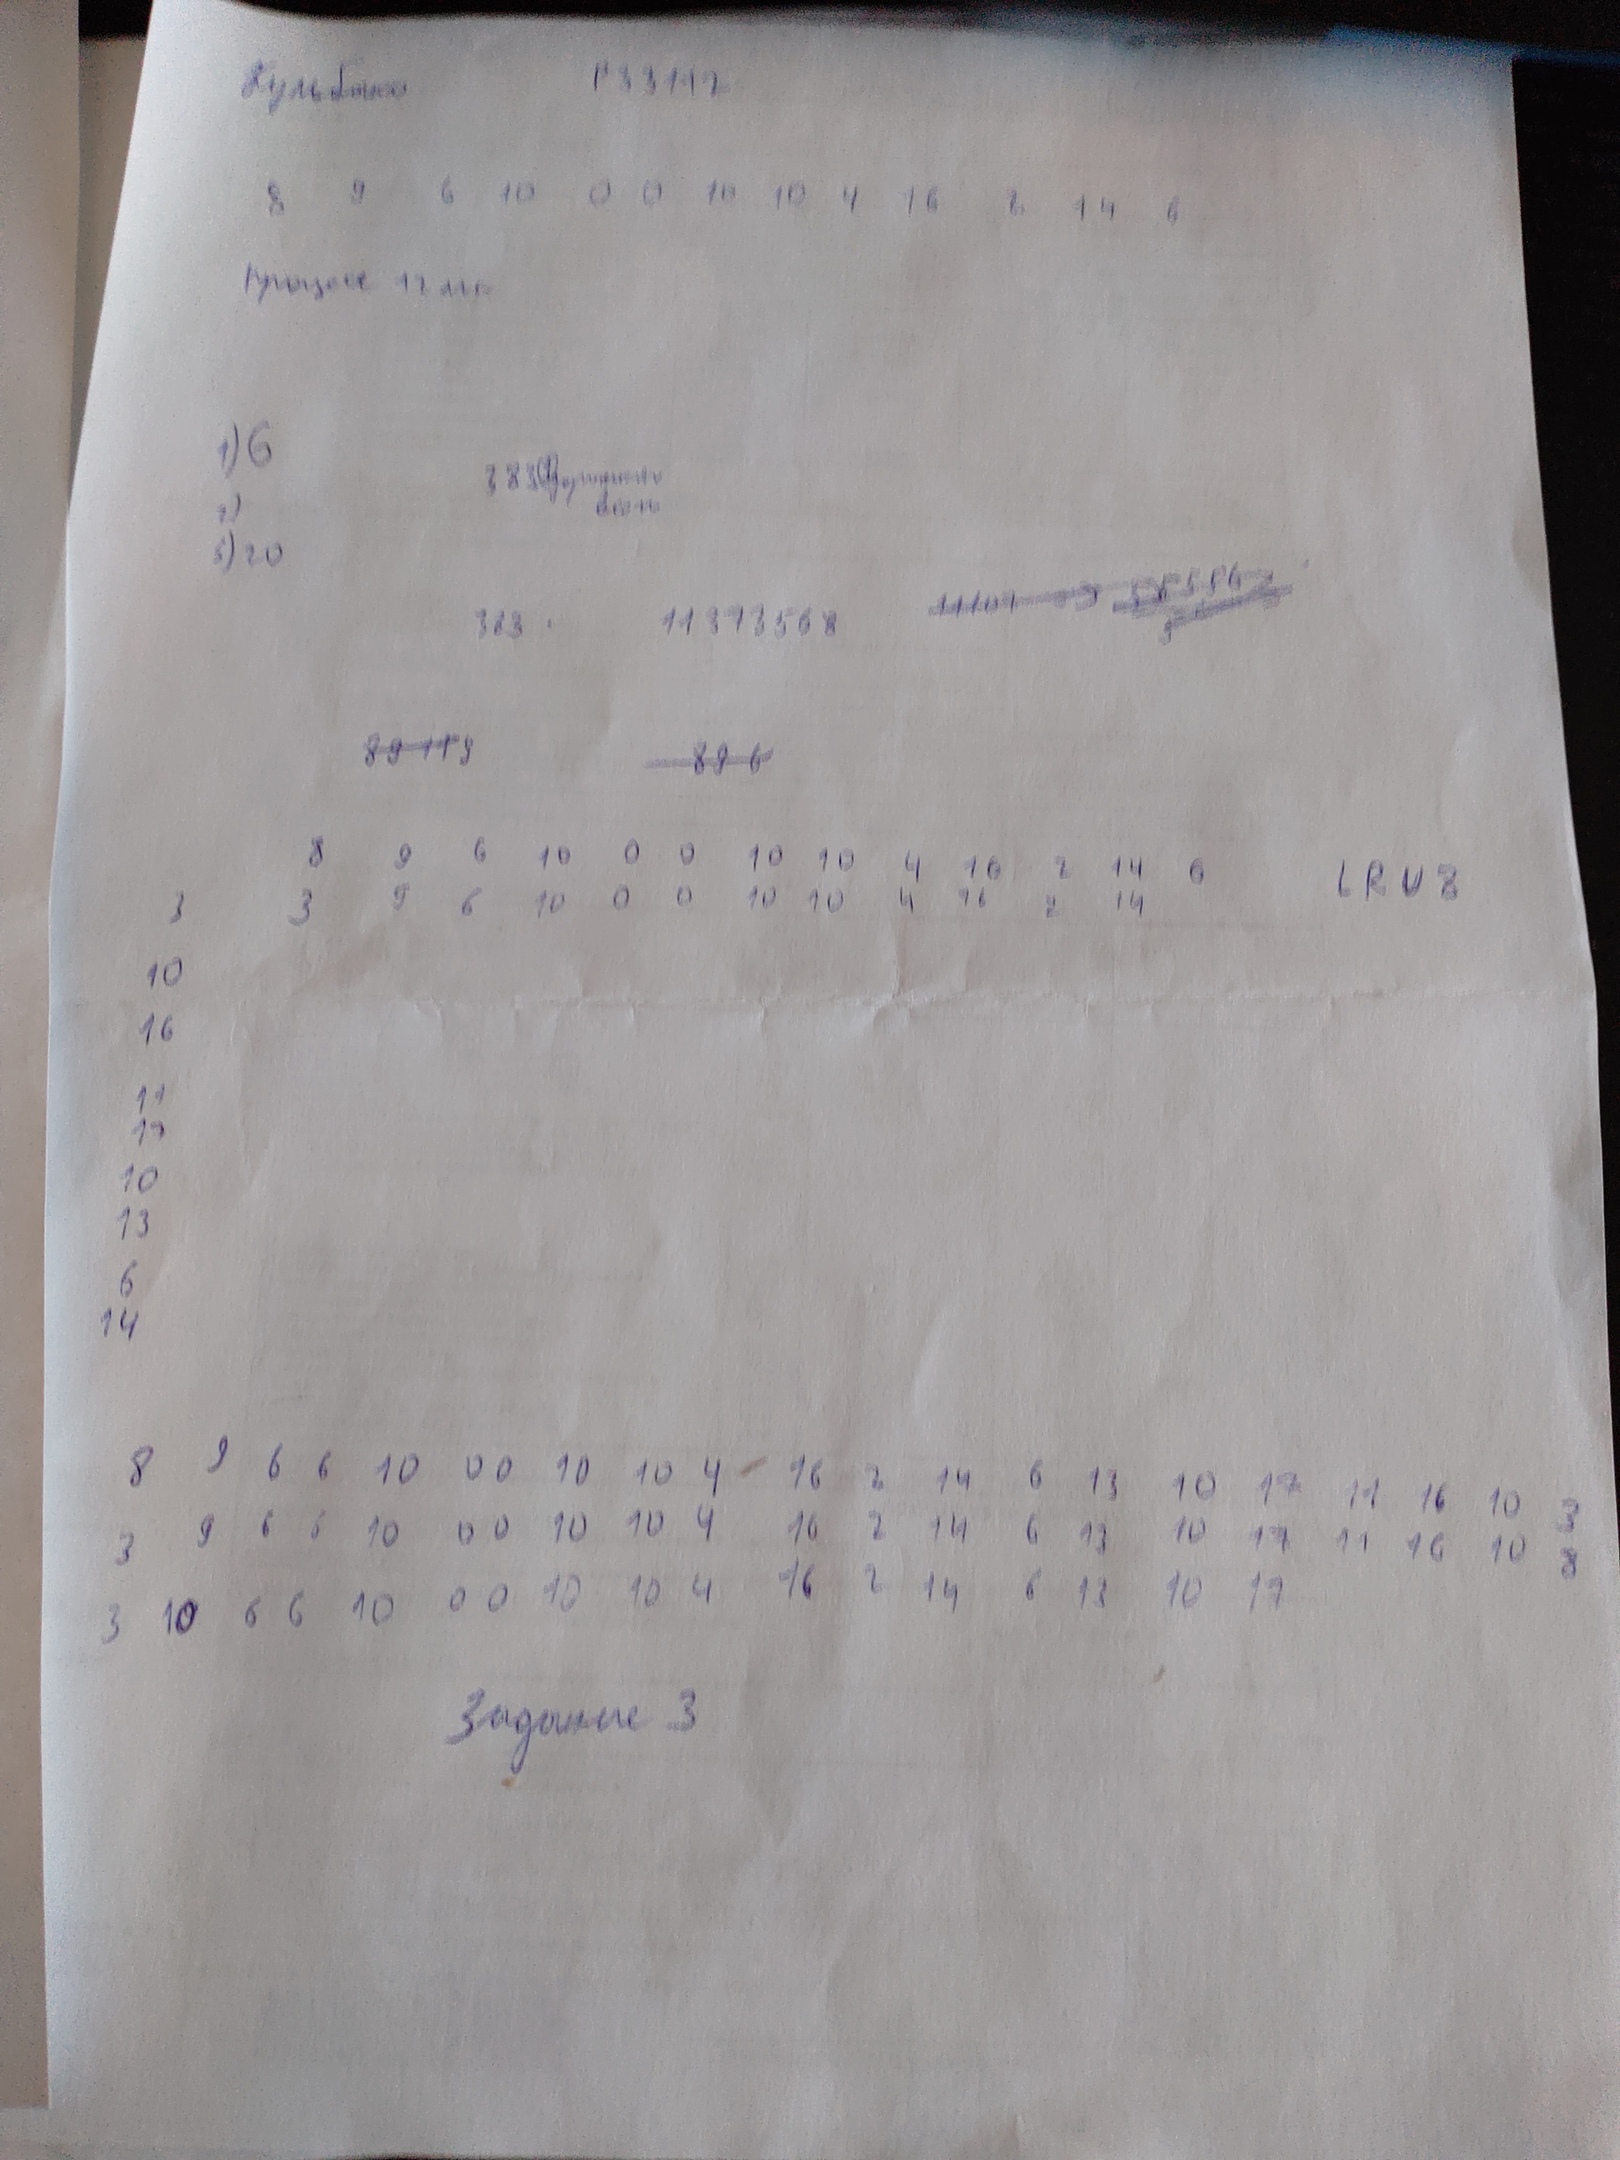 P33112
8 9 6 10 0 0 10 10 4 16 2 14 6
Процесс
1) 6
383
2)
5) 20
383 11373568
89119 896
8 9 6 10 0 0 10 10 4 16 2 14 6 LRU 8
3 3 9 6 10 0 0 10 10 4 16 2 14
10
16
11
17
10
13
6
14
8 9 6 6 10 0 0 10 10 4 16 2 14 6 13 10 17 11 16 10 3
3 9 6 6 10 0 0 10 10 4 16 2 14 6 13 10 17 11 16 10 8
3 10 6 6 10 0 0 10 10 4 16 2 14 6 13 10 17
Задание 3